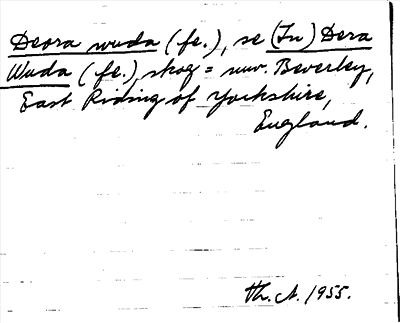 Deora wuda (fe.), se (In) Dera
Wuda (fe.), skog = nuv. Beverley,
East Riding of Yorkshire,
England.
Th. A. 1955.